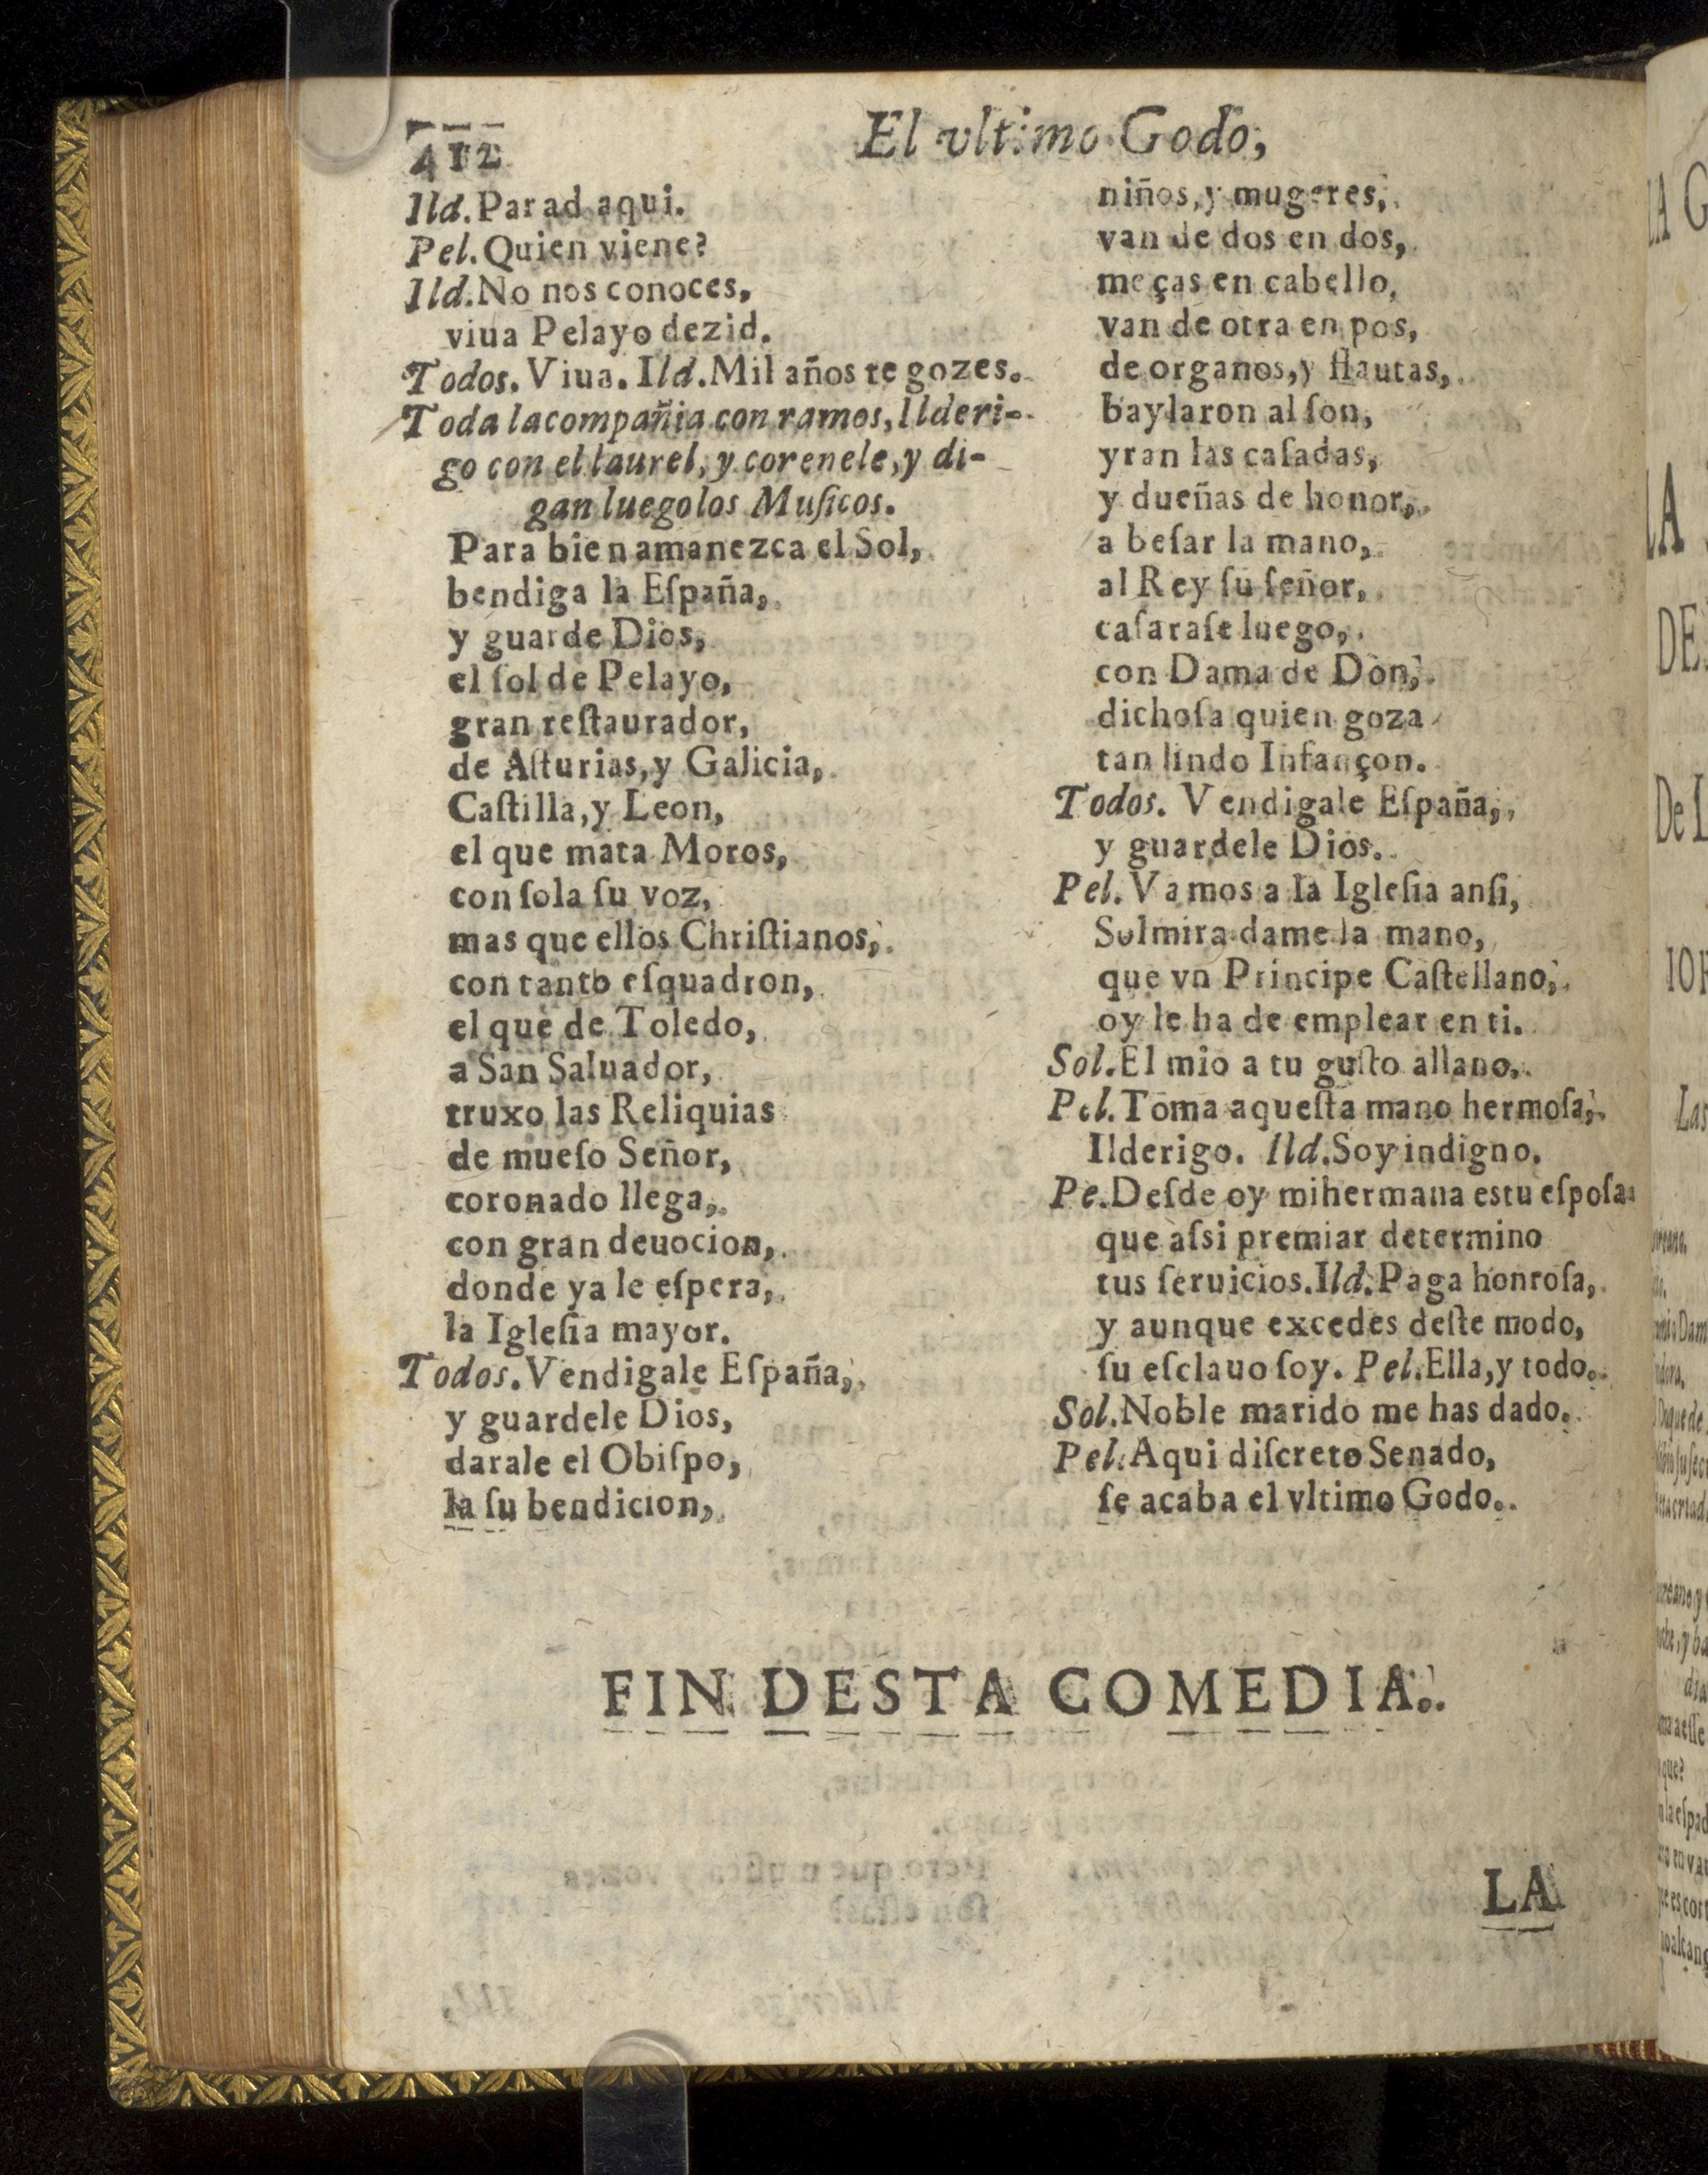 412
El vltimo Godo,
Ild. Parad aqui.
Pel. Quien viene?
Ild. No nos conoces,
viua Pelayo dezid.
Todos. Viua. Ild. Mil años te gozes.
Toda la compañia con ramos, Ilderi-
go con el laurel, y corenele, y di-
gan luego los Muſicos.
Para bien amanezca el Sol,
bendiga la Eſpaña,
y guarde Dios,
el ſol de Pelayo,
gran reſtaurador,
de Aſturias, y Galicia,
Caſtilla, y Leon,
el que mata Moros,
con ſola ſu voz,
mas que ellos Chriſtianos,
con tanto eſquadron,
el que de Toledo,
a San Saluador,
truxo las Reliquias
de mueſo Señor,
coronado llega,
con gran deuocion,
donde ya le eſpera,
la Igleſia mayor.
Todos. Vendigale Eſpaña,
y guardele Dios,
darale el Obiſpo,
la ſu bendicion,
niños, y mugeres,
van de dos en dos,
moças en cabello,
van de otra en pos,
de organos, y flautas,
baylaron al ſon,
yran las caſadas,
y dueñas de honor,
a beſar la mano,
al Rey ſu ſeñor,
caſaraſe luego,
con Dama de Don,
dichoſa quien goza
tan lindo Infançon.
Todos. Vendigale Eſpaña,
y guardele Dios.
Pel. Vamos a la Igleſia anſi,
Solmira dame la mano,
que vn Principe Caſtellano,
oy le ha de emplear en ti.
Sol. El mio a tu guſto allano.
Pel. Toma aqueſta mano hermoſa,
Ilderigo. Ild. Soy indigno.
Pe. Deſde oy mi hermana es tu eſpoſa:
que aſsi premiar determino
tus ſeruicios. Ild. Paga honroſa,
y aunque excedes deſte modo,
ſu eſclauo ſoy. Pel. Ella, y todo.
Sol. Noble marido me has dado.
Pel. Aqui diſcreto Senado,
ſe acaba el vltimo Godo.
FIN DESTA COMEDIA.
LA